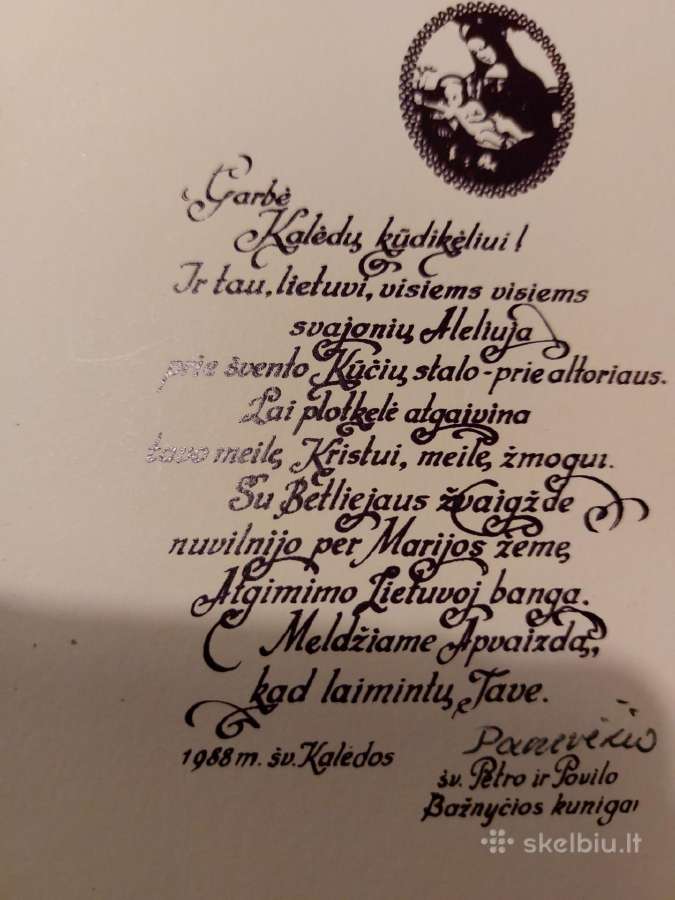 Garbė
Kalėdų kūdikėliui!
Ir tau, lietuvi, visiems visiems
svajonių Aleliuja
prie švento Kūčių stalo - prie altoriaus.
Lai plotkelė atgaivina
tavo meilę Kristui, meilę žmogui.
Su Betliejaus žvaigžde
nuvilnijo per Marijos žemę
Atgimimo Lietuvoj banga.
Meldžiame Apvaizdą,
kad laimintų Tave.
1988 m. šv. Kalėdos
Panevėžio
šv. Petro ir Povilo
Bažnyčios kunigai
skelbiu.lt